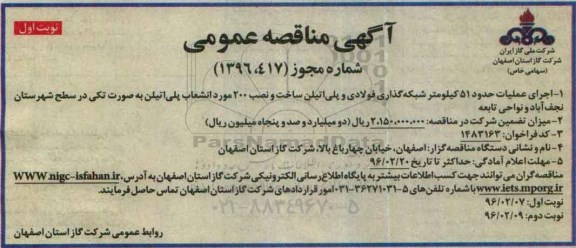 نوبت اول
شرکت ملی گاز ایران
شرکت گاز استان اصفهان
(سهامی خاص)
آگهی مناقصه عمومی
شماره مجوز (۱۳۹۶،۴۱۷)
۱-اجرای عملیات حدود ۵۱ کیلومتر شبکه گذاری فولادی و پلی اتیلن ساخت و نصب ۲۰۰ مورد انشعاب پلی اتیلن به صورت تکی در سطح شهرستان
نجف آباد و نواحی تابعه
۲-میزان تضمین شرکت در مناقصه: ۲.۱۵۰.۰۰۰.۰۰۰ ریال (دو میلیارد و صد و پنجاه میلیون ریال)
۳-کد فراخوان: ۱۴۸۳۱۶۳
۴-نام و نشانی دستگاه مناقصه گزار: اصفهان، خیابان چهارباغ بالا، شرکت گاز استان اصفهان
۵-مهلت اعلام آمادگی: حداکثر تا تاریخ ۹۶/۰۲/۲۰
مناقصه گران می توانند جهت کسب اطلاعات بیشتر به پایگاه اطلاع رسانی الکترونیکی شرکت گاز استان اصفهان به آدرس، WWW.nigc-isfahan.ir
www.iets.mporg.ir با شماره تلفن های ۵-۳۶۲۷۱۰۳۱-۰۳۱ امور قراردادهای شرکت گاز استان اصفهان تماس حاصل فرمایند.
نوبت اول: ۹۶/۰۲/۰۷
نوبت دوم: ۹۶/۰۲/۰۹
روابط عمومی شرکت گاز استان اصفهان
۰۲۱-۸۸۳۴۹۶۷۰-۵